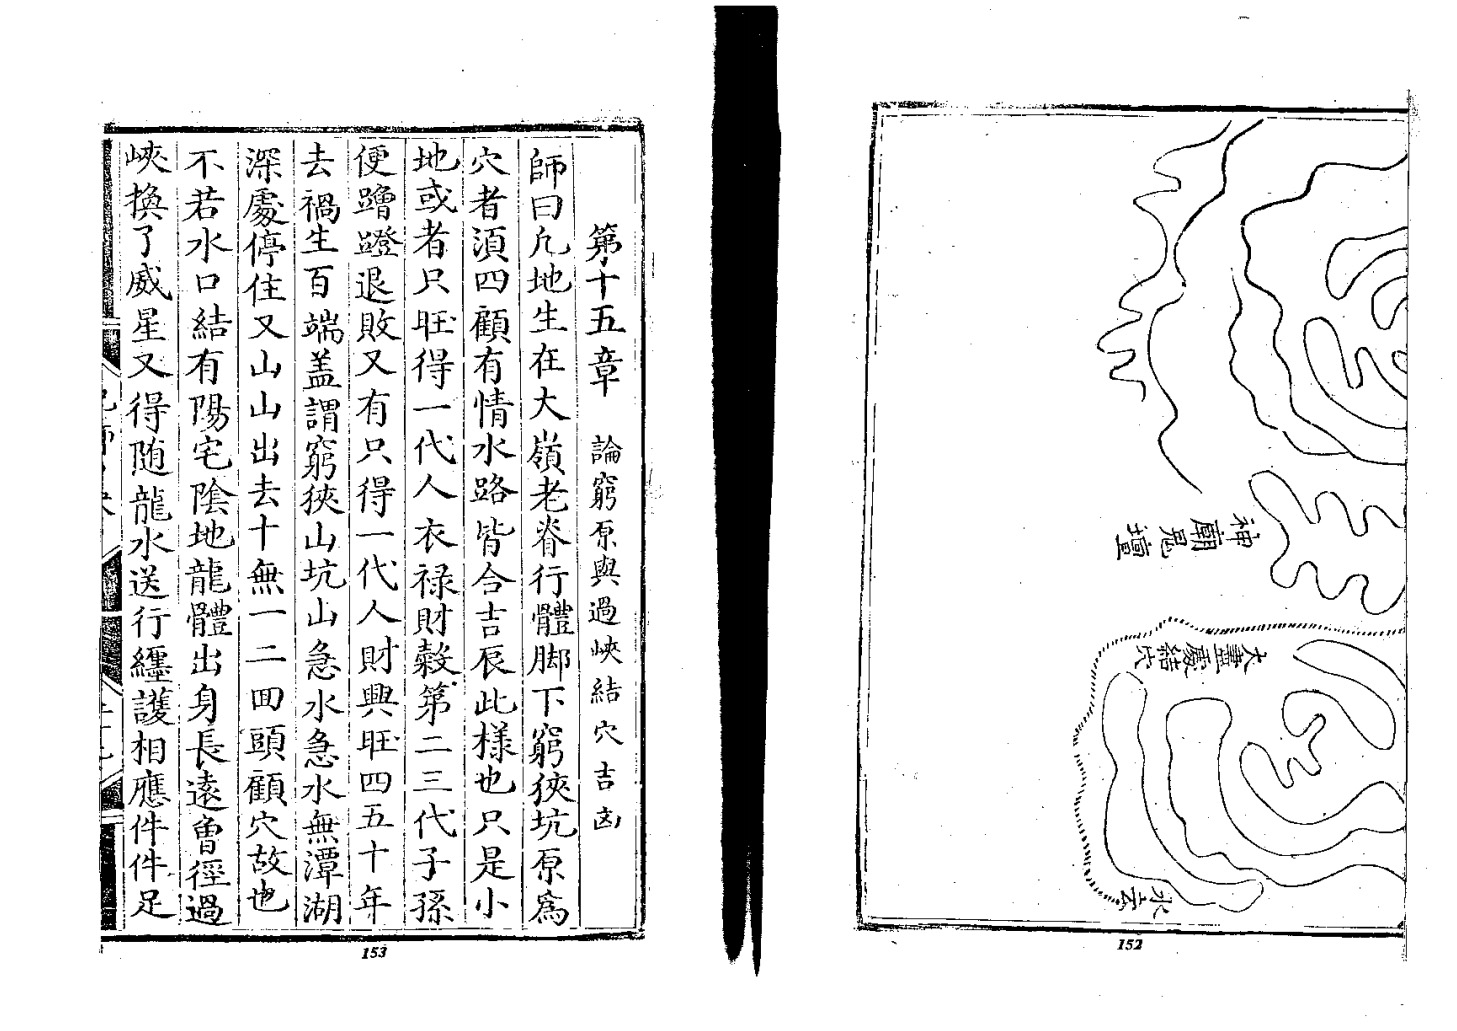 神廟鬼壇
大盡處結穴
水去
152
第十五章 論窮原與過峽結穴吉凶
師曰凢地生在大嶺老脊行體脚下窮狹坑原爲
穴者湏四顧有情水路皆合吉辰此様也只是小
地或者只旺得一代人衣禄財穀第二三代子孫
便蹭蹬退敗又有只得一代人財興旺四五十年
去禍生百端盖謂窮狹山坑山急水急水無潭湖
深處停住又山山出去十無一二囬頭顧穴故也
不若水口結有陽宅陰地龍體出身長遠曾徑過
峽換了威星又得随龍水送行纒護相應件件足
153